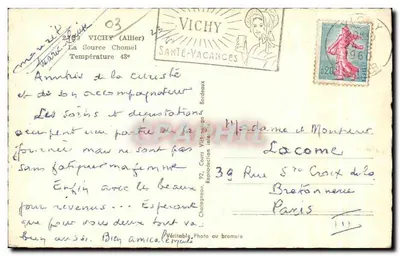 03
VICHY (Allier)
La Source Chomel
Température 42°
VICHY
SANTÉ-VACANCES
1960
0,20
Amitiés de la curiste
et de son accompagnateur
Les soins et dégustations
occupent une partie de la
journée mais ne sont pas
sans fatiguer
Enfin avec les beaux
jours revenus... Espérant
que pour vous deux tout va
bien aussi. Bien amicalement
Madame et Monsieur
Lacome
39 Rue Ste Croix de la
Bretonnerie
Paris
III
Véritable Photo au bromure